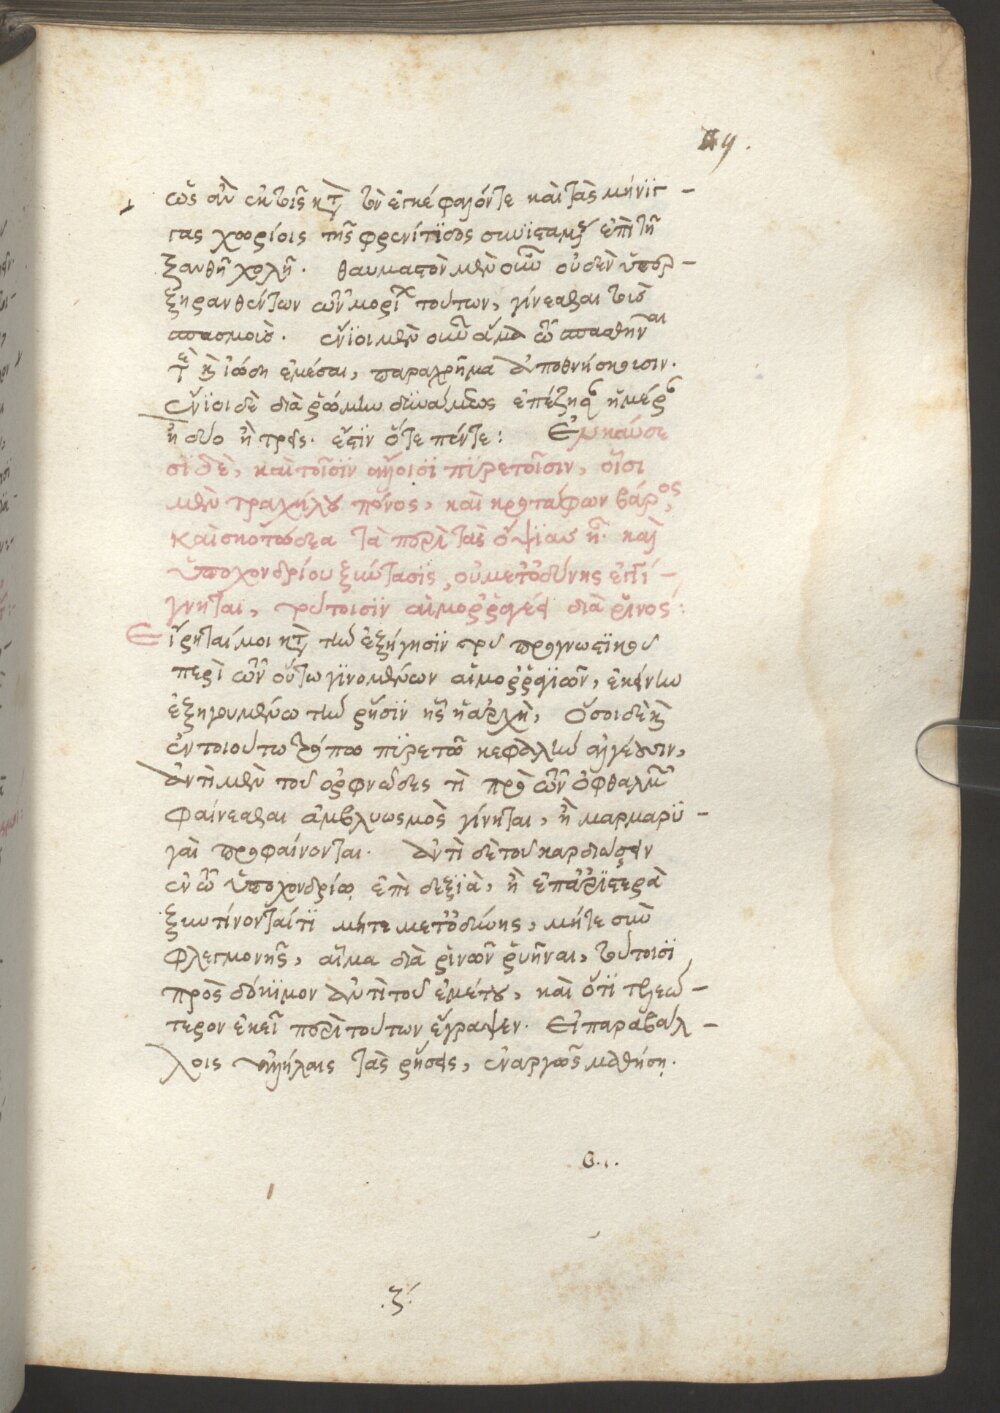 49.
ὡς ἂν ἐν τοῖς κτ τὸν ἐγκέφαλόν τε καὶ τὰς μήνιγ-
γας χωρίοις τῆς φρενίτιδος συνισταμξ ἐπὶ τῇ
ξανθῇ χολῇ. θαυμαστὸν μὲν οὖν οὐδὲν ὑπερ-
ξηρανθέντων τῶν μορί τούτων, γίνεσθαι τοὺς
σπασμούς. ἔνιοι μὲν οὖν ἅμα τῷ σπασθῆναι
τε καὶ ἰώδη ἐμέσαι, παραχρῆμα ἀποθνήσκουσιν.
ἔνιοι δὲ διὰ ῥώμην δυνάμεως ἐπέζησαν ἡμέρας
ἢ δύο ἢ τρεῖς. ἔστιν ὅτε πέντε: Ἐν καύσε
σι δὲ, καὶ τοῖσιν ἄλλοισι πυρετοῖσιν, οἷσι
μὲν τραχήλου πόνος, καὶ κροτάφων βάρος,
καὶ σκοτώδεα τὰ περὶ τὰς ὄψιας ἢ. καὶ
ὑποχονδρίου ξύντασις, οὐ μετ' ὀδύνης ἐπι-
γίνηται, τούτοισιν αἱμορραγέει διὰ ῥινός:
Εἴρηταί μοι κτ τὴν ἐξήγησιν τοῦ προγνωστικοῦ
περὶ τῶν οὕτω γινομένων αἱμορραγιῶν, ἐκείνην
ἐξηγουμένω τὴν ῥῆσιν ἧς ἡ ἀρχὴ, Ὅσοι δὲ καὶ
ἐν τοιούτω τρόπω πυρετοῦ κεφαλὴν ἀλγέουσιν,
ἀντὶ μὲν τοῦ ὀρφνῶδές τι πρὸ τῶν ὀφθαλμῶν
φαίνεσθαι ἀμβλυωσμὸς γίνηται, ἢ μαρμαρυ-
γαὶ προφαίνονται. ἀντὶ δὲ τοῦ καρδιώσσειν
ἐν τῷ ὑποχονδρίῳ ἐπὶ δεξιὰ, ἢ ἐπ' ἀριστερὰ
ξυντίνονταί τι μήτε μετ' ὀδύνης, μήτε σὺν
φλεγμονῆς, αἷμα διὰ ῥινῶν ῥυῆναι, τούτοισι
πρὸς δόκιμον ἀντὶ τοῦ ἐμέτου, καὶ ὅτι τελεώ-
τερον ἐκεῖ περὶ τούτων ἔγραψεν. Εἰ παραβάλ-
λοις ἀλλήλαις τὰς ῥήσεις, ἐναργῶς μαθήσῃ.
ζ